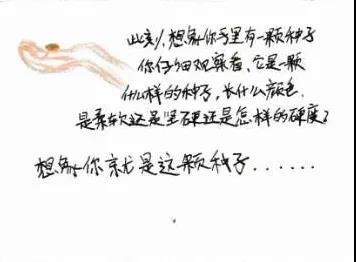 此刻,想象你手里有一颗种子
你仔细观察着,它是一颗
什么样的种子,长什么颜色,
是柔软还是坚硬还是怎样的硬度?
想象你就是这颗种子......